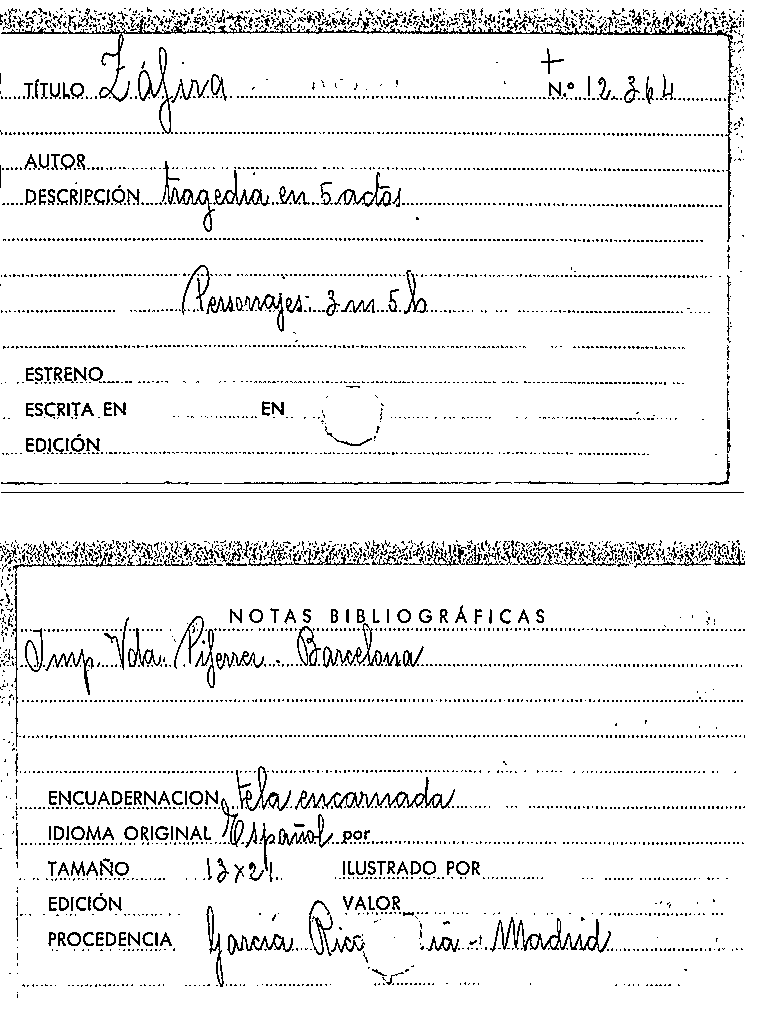 TÍTULO Záfira
+
N.º 12.364
AUTOR
DESCRIPCIÓN tragedia en 5 actos
Personajes: 3 m 5 h
ESTRENO
ESCRITA EN EN
EDICIÓN
NOTAS BIBLIOGRÁFICAS
Imp. Vda. Piferrer. Barcelona
ENCUADERNACION tela encarnada
IDIOMA ORIGINAL Español por
TAMAÑO 13x21 ILUSTRADO POR
EDICIÓN VALOR
PROCEDENCIA García Rico - Madrid